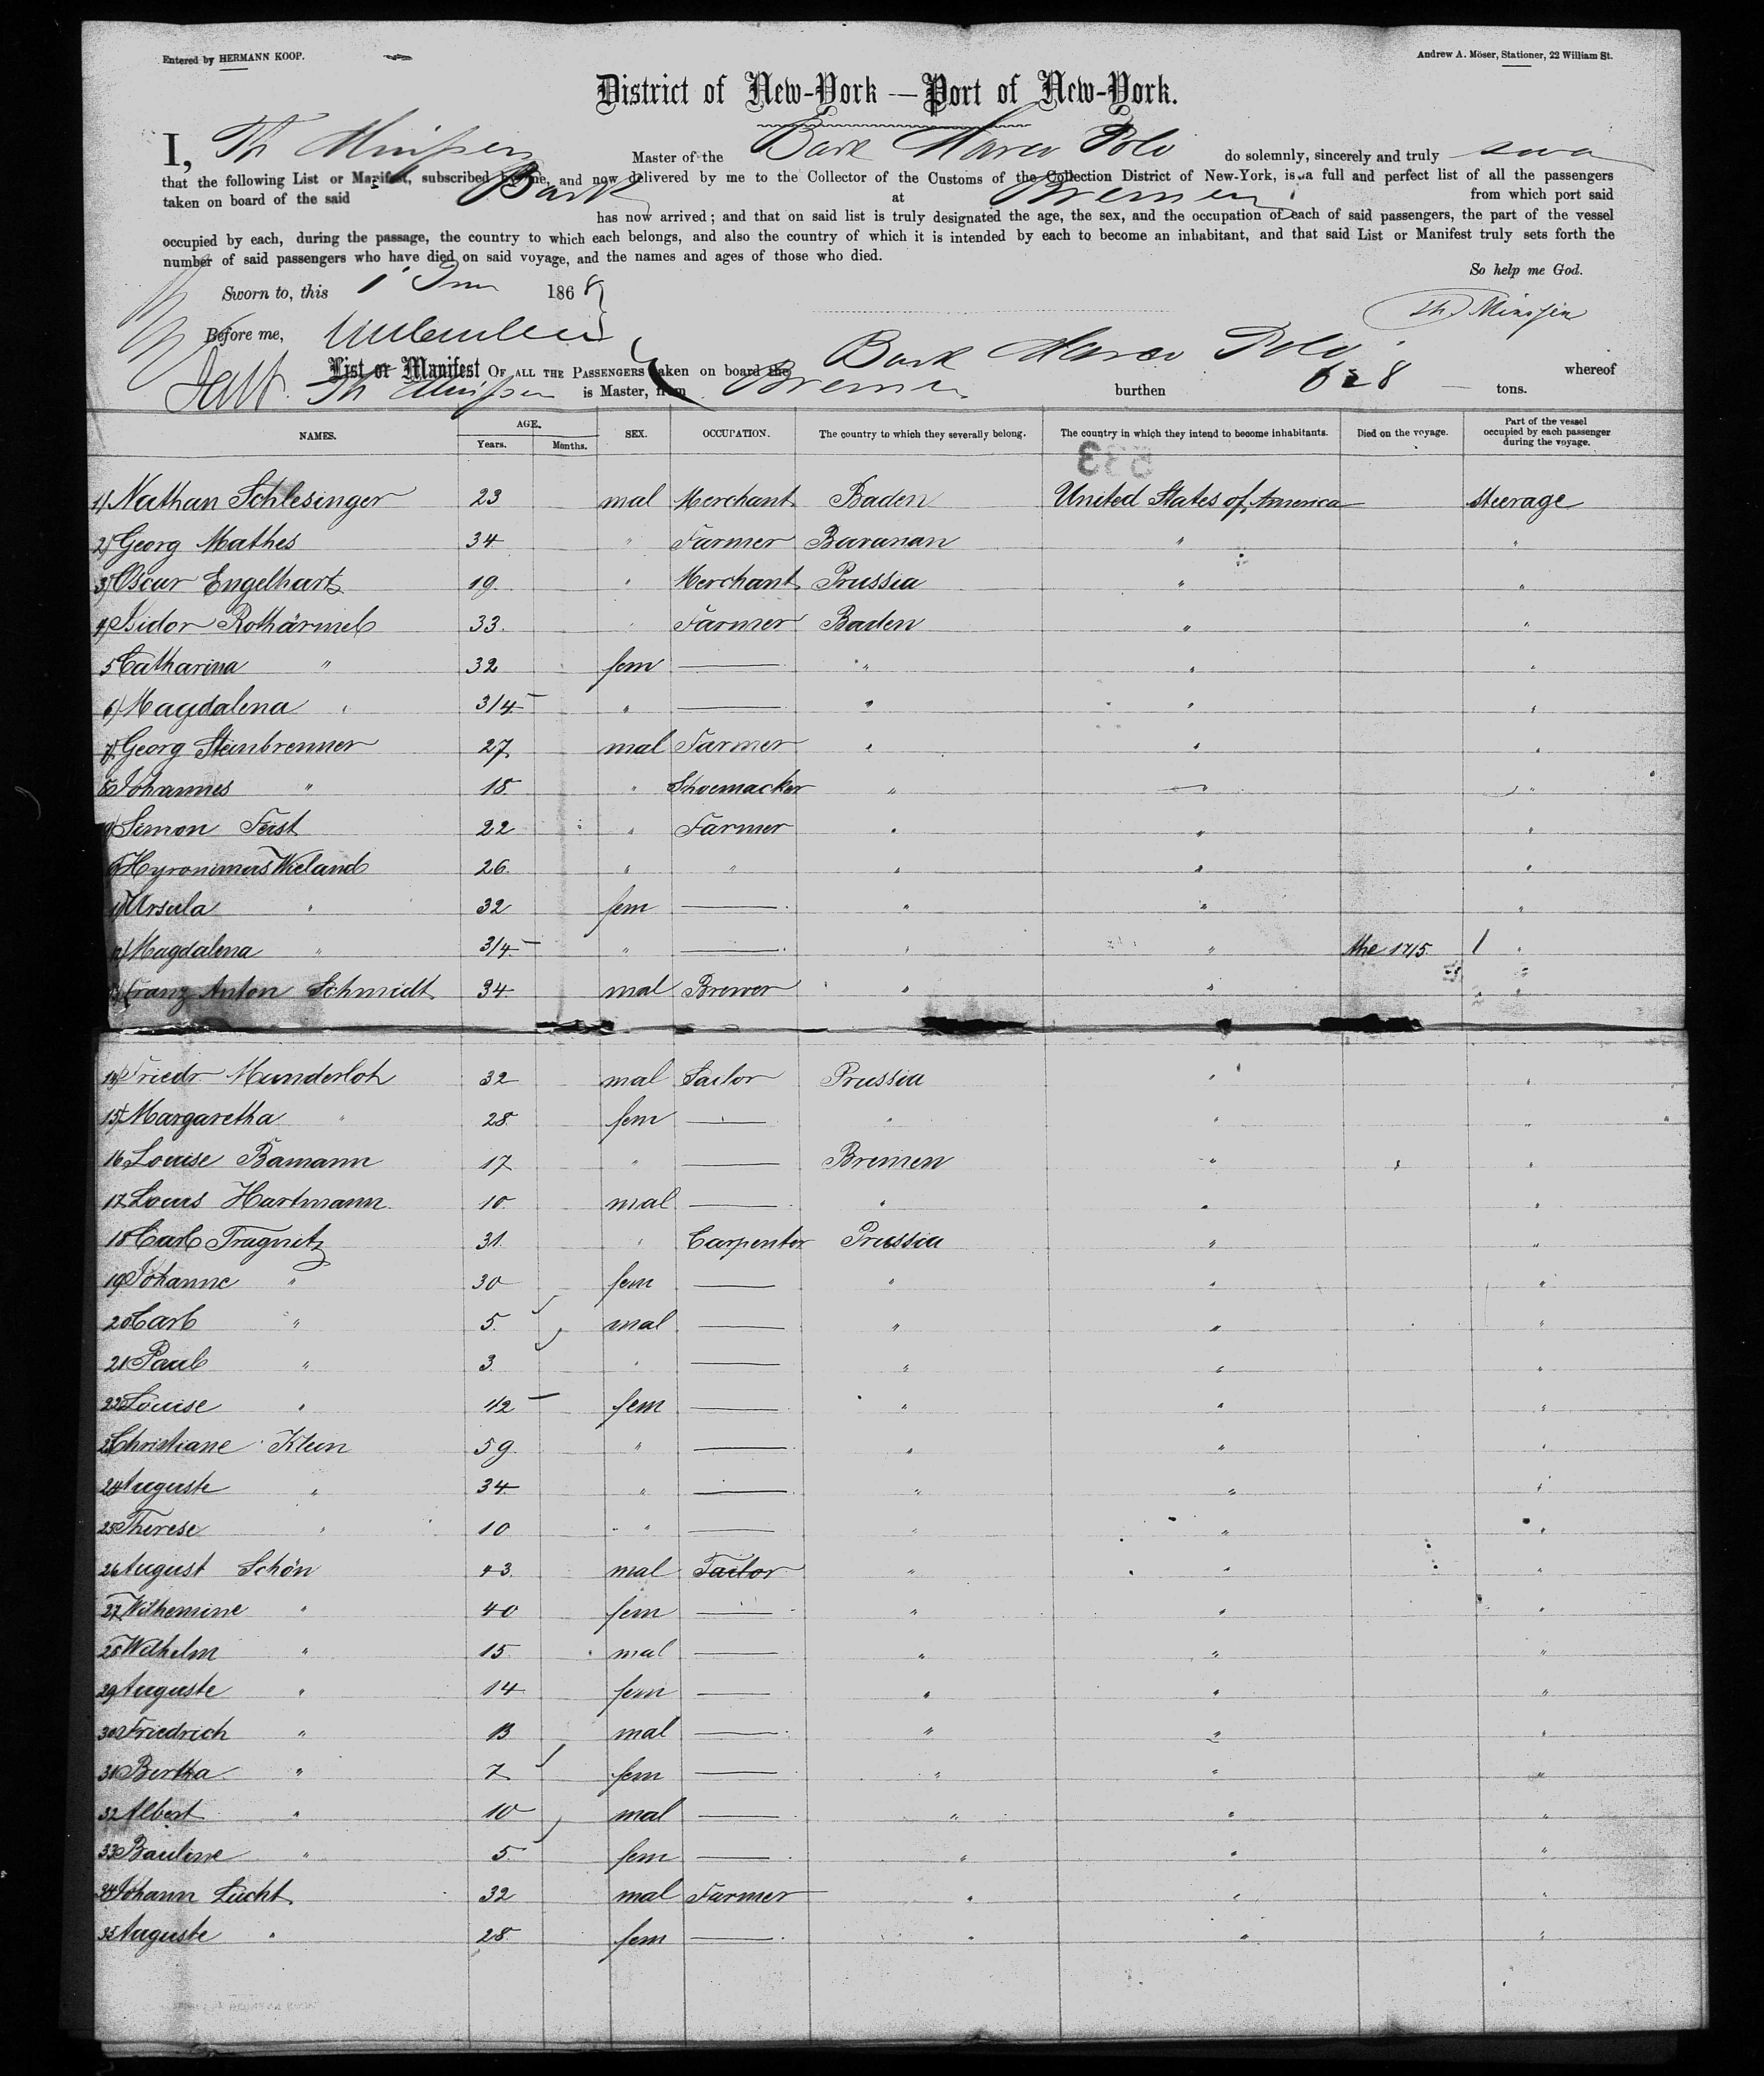 Entered by HERMANN KOOP.
Andrew A. Möser, Stationer, 22 William St.
District of New-York — Port of New-York.
I, Th Minssen Master of the Bark Marco Polo do solemnly, sincerely and truly swea
that the following List or Manifest, subscribed by me, and now delivered by me to the Collector of the Customs of the Collection District of New-York, is a full and perfect list of all the passengers
taken on board of the said Bark at Bremen from which port said
has now arrived; and that on said list is truly designated the age, the sex, and the occupation of each of said passengers, the part of the vessel
occupied by each, during the passage, the country to which each belongs, and also the country of which it is intended by each to become an inhabitant, and that said List or Manifest truly sets forth the
number of said passengers who have died on said voyage, and the names and ages of those who died.
So help me God.
Sworn to, this 1 Jun 1868
Th Minssen
Before me,
List or Manifest OF ALL THE PASSENGERS taken on board the Bark Marco Polo whereof
Th Minssen is Master, from Bremen burthen 628 tons.
NAMES. AGE. Years. Months. SEX. OCCUPATION. The country to which they severally belong. The country in which they intend to become inhabitants. Died on the voyage. Part of the vessel occupied by each passenger during the voyage.
1) Nathan Schlesinger 23 mal Merchant Baden United States of America steerage
2) Georg Mathes 34 " Farmer Bavarian " "
3) Oscar Engelhart 19 " Merchant Prussia " "
4) Isidor Rothärmel 33 " Farmer Baden " "
5 Catharina " 32 fem — " " "
6) Magdalena " 3/4 " — " " "
7) Georg Steinbrenner 27 mal Farmer " " "
8 Johannes " 18 " Shoemacker " " "
9) Simon Feist 22 " Farmer " " "
10) Hyronimus Wieland 26 " " " " "
11) Ursula " 32 fem — " " "
12) Magdalena " 3/4 " — " " the 17/5 1 "
13) Franz Anton Schmidt 34 mal Brewer " " "
14) Friedr Munderloh 32 mal Tailor Prussia " "
15) Margaretha " 28 fem — " " "
16 Louise Bamann 17 " — Bremen " "
17 Louis Hartmann 10 mal — " " "
18 Carl Tragnitz 31 " Carpenter Prussia " "
19 Johanne " 30 fem — " " "
20 Carl " 5 mal — " " "
21 Paul " 3 " — " " "
22 Louise " 1/2 fem — " " "
23 Christiane Klein 59 " — " " "
24 Auguste " 34 " — " " "
25 Therese " 10 " — " " "
26 August Schön 43 mal Tailor " " "
27 Wilhemine " 40 fem — " " "
28 Wilhelm " 15 mal — " " "
29 Auguste " 14 fem — " " "
30 Friedrich " 13 mal — " " "
31 Bertha " 7 fem — " " "
32 Albert " 10 mal — " " "
33 Pauline " 5 fem — " " "
34 Johann Lücht 32 mal Farmer " " "
35 Auguste " 28 fem — " " "